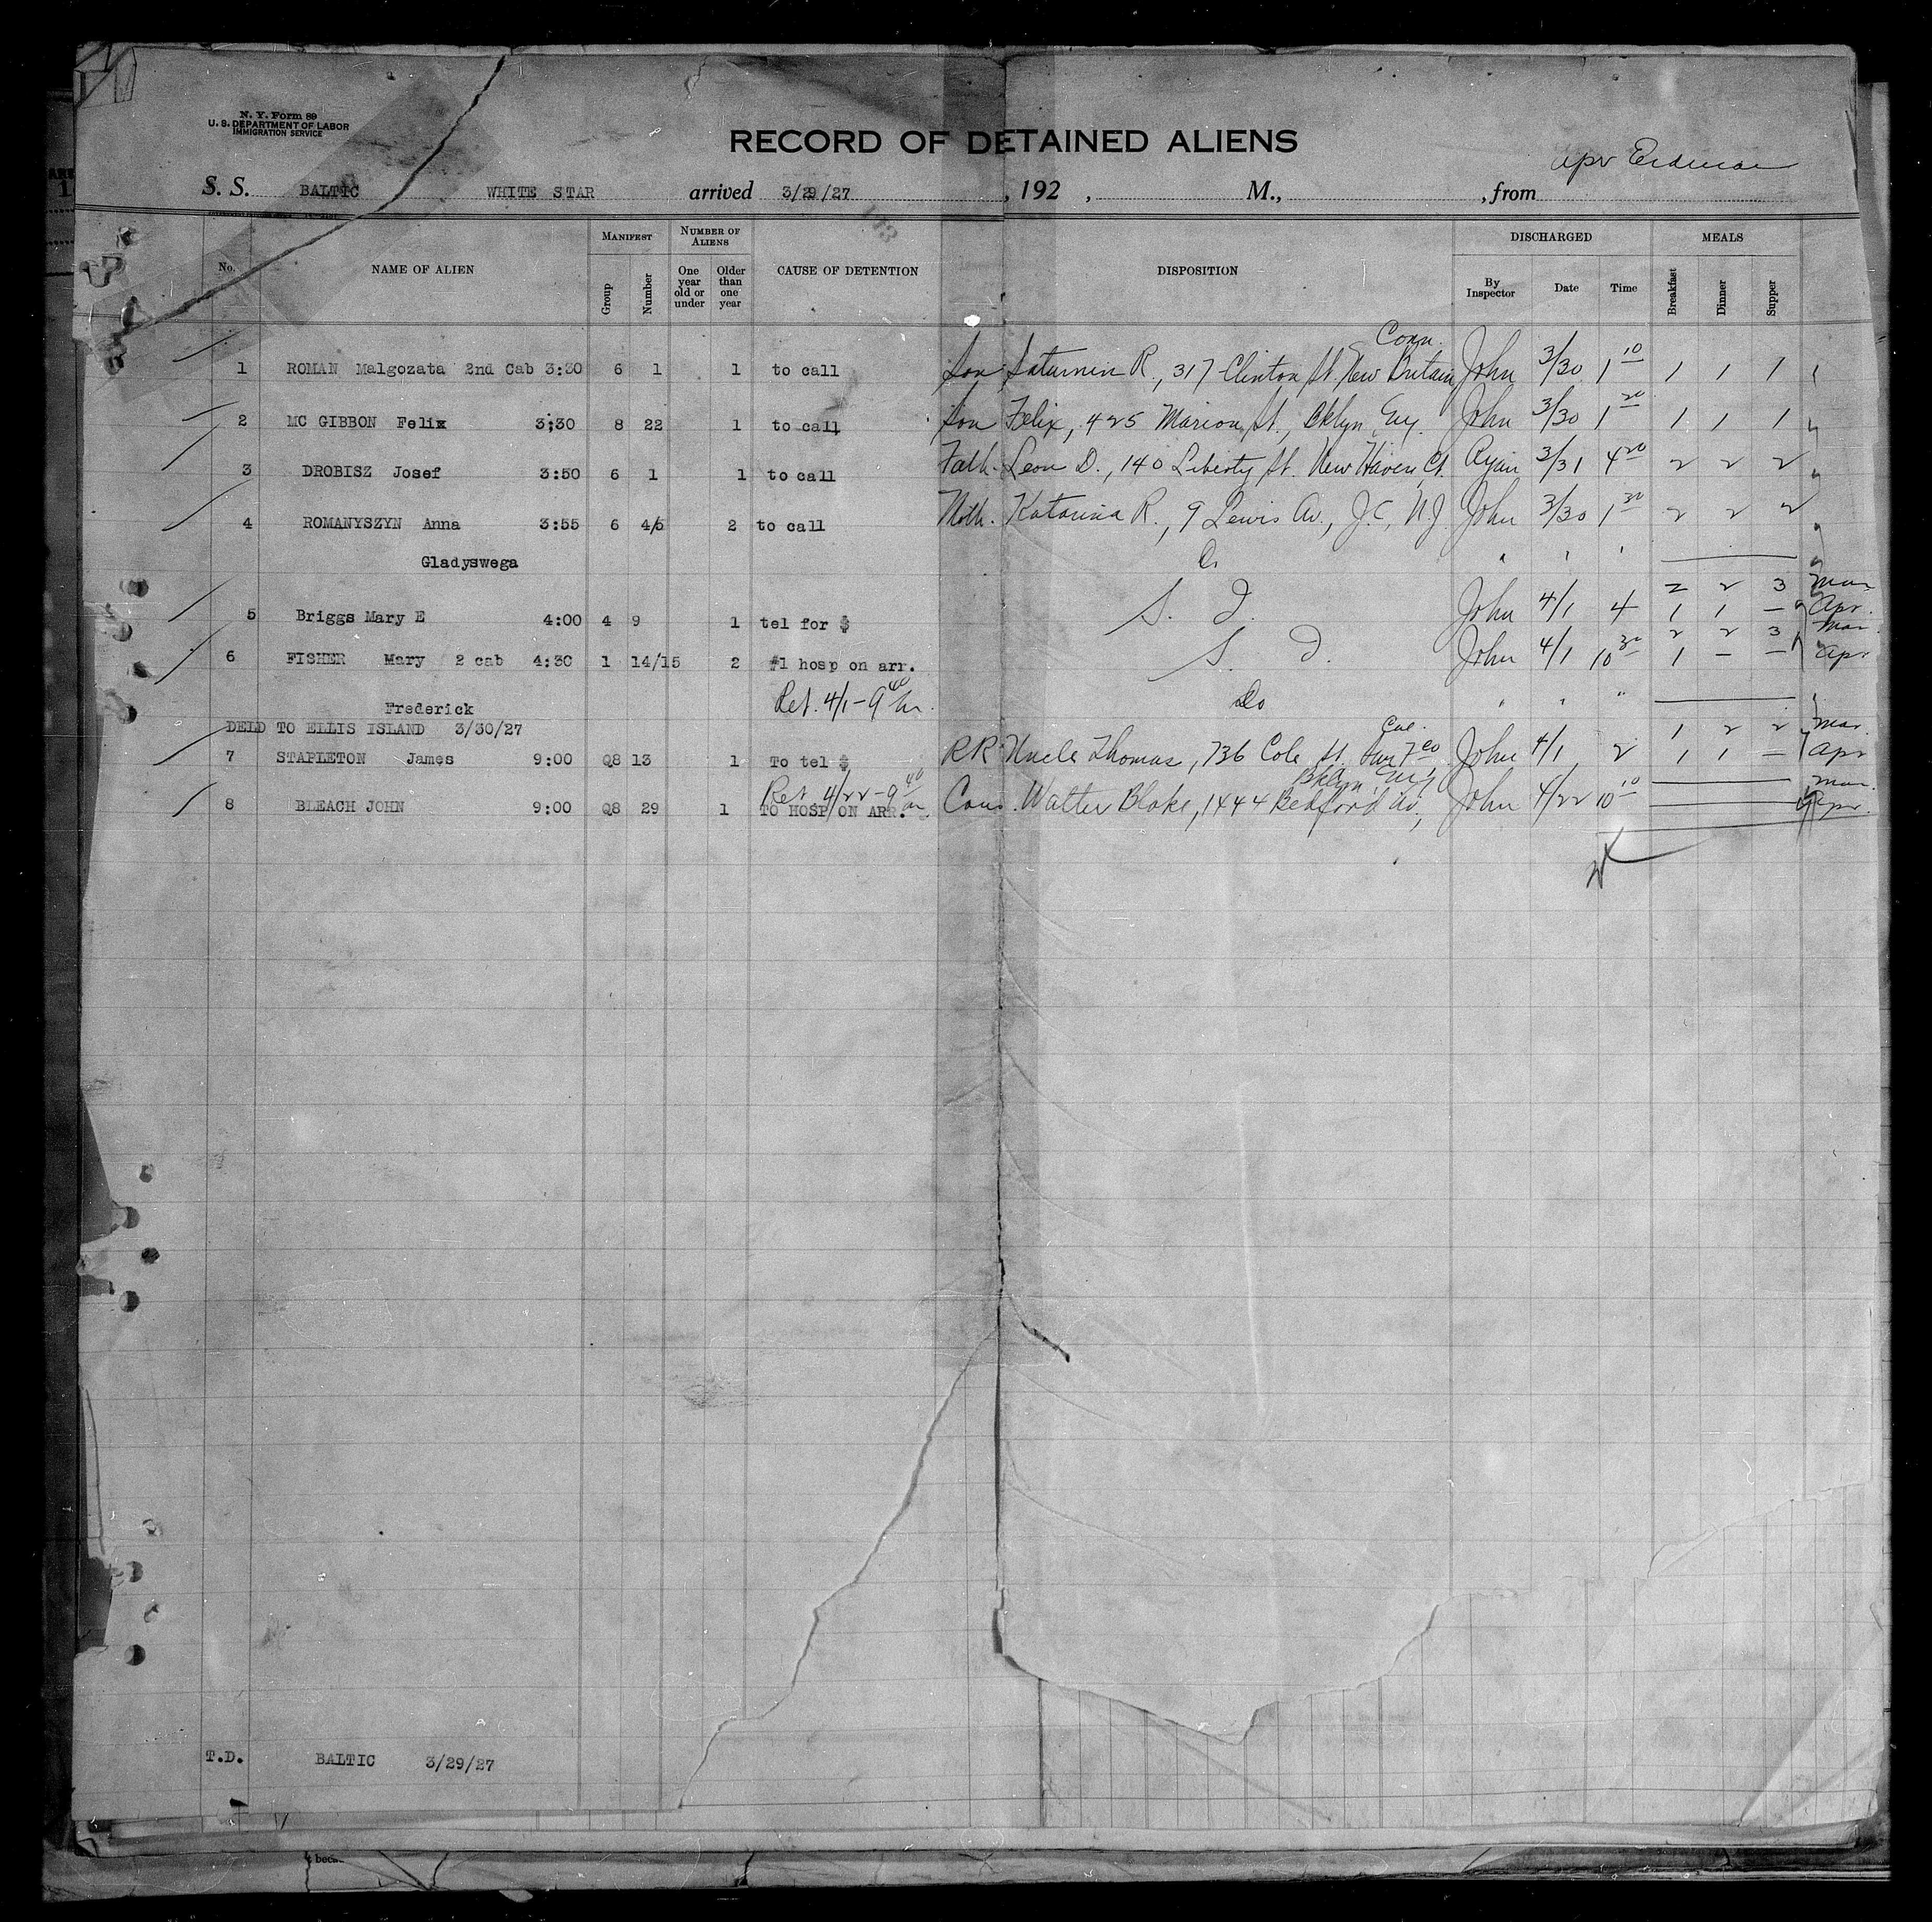 N. Y. Form 89
U. S. DEPARTMENT OF LABOR
IMMIGRATION SERVICE
RECORD OF DETAINED ALIENS
S. S. BALTIC WHITE STAR arrived 3/29/27, 192 , M., , from
No. NAME OF ALIEN MANIFEST Group Number NUMBER OF ALIENS One year old or under Older than one year CAUSE OF DETENTION DISPOSITION DISCHARGED By Inspector Date Time MEALS Breakfast Dinner Supper
Conn.
1 ROMAN Malgozata 2nd Cab 3:30 6 1 1 to call Son Saturnin R., 317 Clinton St. New Britain John 3/30 1 10 1 1 1
2 MC GIBBON Felix 3;30 8 22 1 to call Son Felix, 425 Marion St., John 3/30 1 20 1 1 1
3 DROBISZ Josef 3:50 6 1 1 to call Fath. Leon D., 140 Liberty St. New Haven, Ct. Ryan 3/31 4 20 2 2 2
4 ROMANYSZYN Anna 3:55 6 4/5 2 to call Moth. Katarina R., 9 Lewis Av., J.C, N.J. John 3/30 1 30 2 2 2
Gladyswega " " "
2 2 3 Mar
5 Briggs Mary E 4:00 4 9 1 tel for $ S. I. John 4/1 4 1 1 — Apr.
2 2 3 Mar.
6 FISHER Mary 2 cab 4:30 1 14/15 2 #1 hosp on arr. S. I. John 4/1 10 30 1 — — Apr
Frederick Ret. 4/1 - 9 40 Do " " "
DELD TO ELLIS ISLAND 3/30/27
Cal. 1 2 2 Mar.
7 STAPLETON James 9:00 Q8 13 1 To tel $ RR Uncle Thomas, 736 Cole St. John 4/1 2 1 1 — Apr
Ret. 4/22 - 9 40 Bklyn. N.Y. Mar.
8 BLEACH JOHN 9:00 Q8 29 1 TO HOSP ON ARR. Cous. Walter Blake, 1444 Bedford Av., John 4/22 10 10 Apr.
T.D. BALTIC 3/29/27